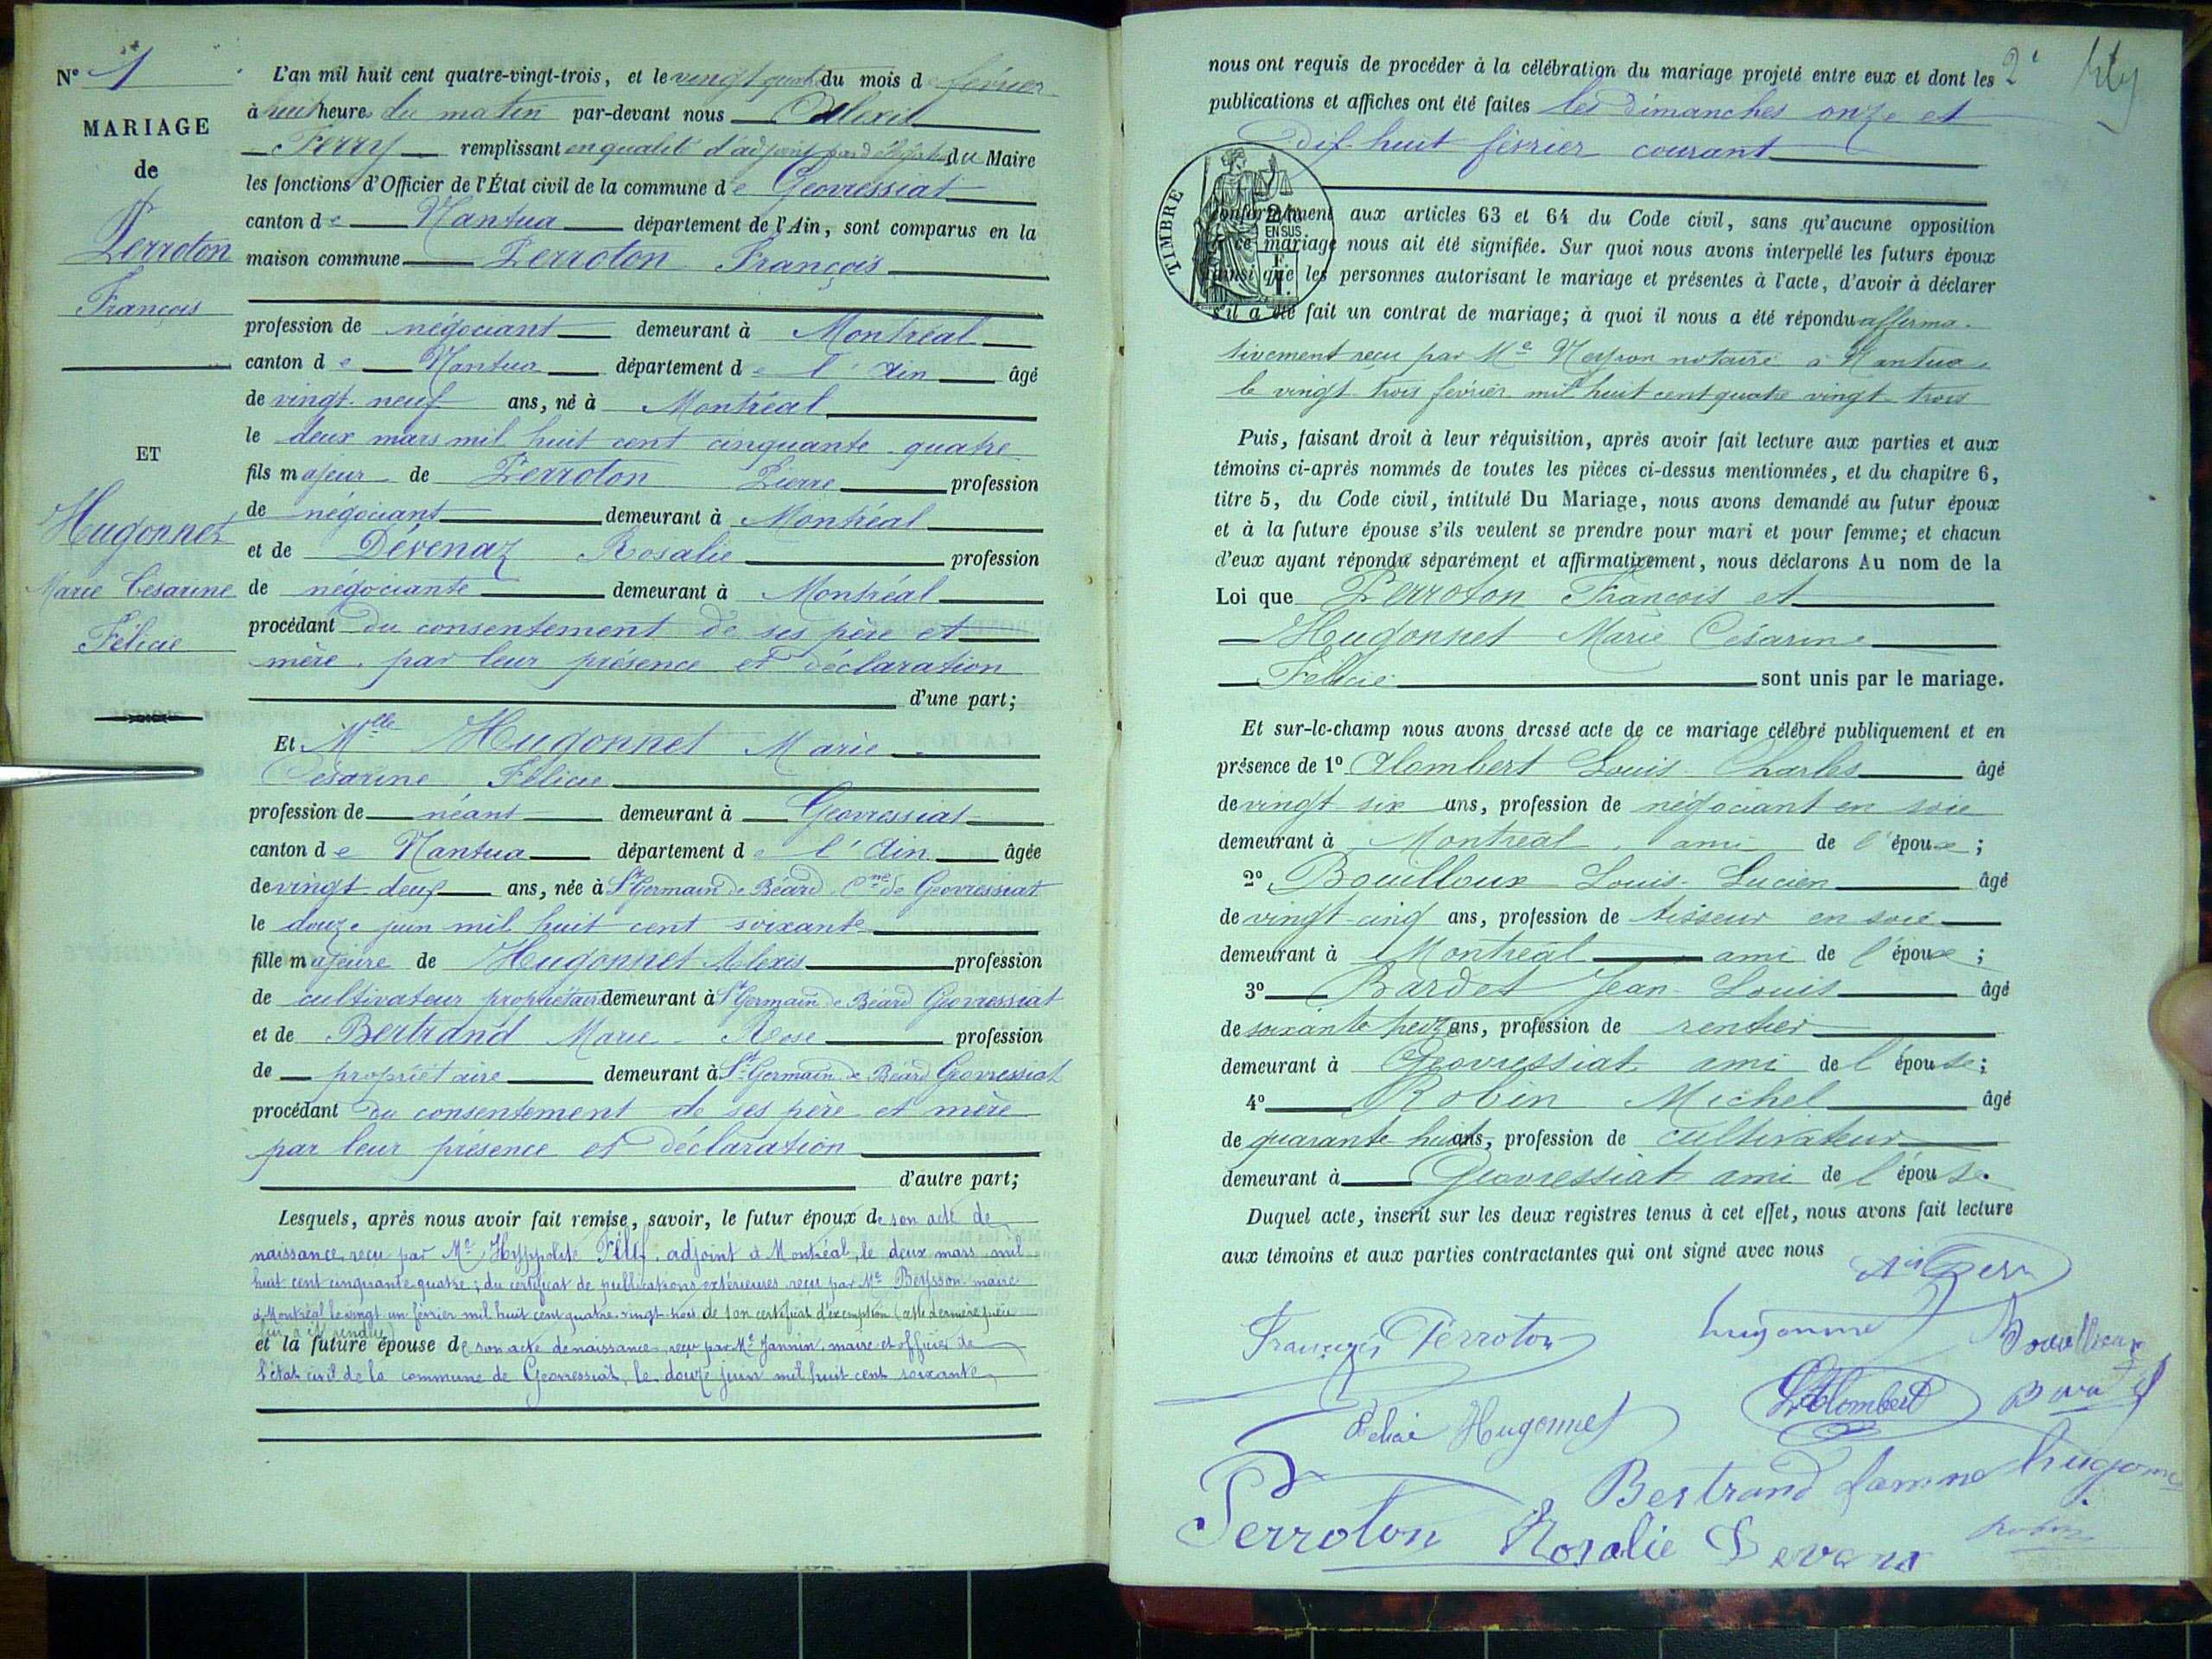 N° 1
MARIAGE
de
Perroton
François
ET
Hugonnet
Marie Césarine
Félicie
L'an mil huit cent quatre-vingt-trois, et le vingt quatre du mois de février
à huit heures du matin par-devant nous Alexis
Ferry remplissant en qualité d'adjoint par délégation du Maire
les fonctions d'Officier de l'État civil de la commune de Geovressiat
canton de Nantua département de l'Ain, sont comparus en la
maison commune Perroton François
profession de négociant demeurant à Montréal
canton de Nantua département de l'Ain âgé
de vingt-neuf ans, né à Montréal
le deux mars mil huit cent cinquante quatre
fils majeur de Perroton Pierre profession
de négociant demeurant à Montréal
et de Dévenaz Rosalie profession
de négociante demeurant à Montréal
procédant du consentement de ses père et
mère, par leur présence et déclaration
d'une part;
Et Mlle Hugonnet Marie
Césarine Félicie
profession de néant demeurant à Geovressiat
canton de Nantua département de l'Ain âgée
de vingt deux ans, née à St Germain de Béard Cne de Geovressiat
le douze juin mil huit cent soixante
fille majeure de Hugonnet Alexis profession
de cultivateur propriétaire demeurant à St Germain de Béard Geovressiat
et de Bertrand Marie-Rose profession
de propriétaire demeurant à St Germain de Béard Geovressiat
procédant du consentement de ses père et mère
par leur présence et déclaration
d'autre part;
Lesquels, après nous avoir fait remise, savoir, le futur époux de son acte de
naissance reçu par Me Hyppolite adjoint à Montréal, le deux mars mil
huit cent cinquante-quatre; du certificat de publications extérieures reçu par Me Beysson maire
à Montréal le vingt un février mil huit cent quatre-vingt-trois de son certificat d'exemption (cette dernière pièce
lui a été rendue)
et la future épouse de son acte de naissance, reçu par Me Jannin, maire et officier de
l'état civil de la commune de Geovressiat, le douze juin mil huit cent soixante
2e
nous ont requis de procéder à la célébration du mariage projeté entre eux et dont les
publications et affiches ont été faites les dimanches onze et
dix-huit février courant
TIMBRE
2/10
EN SUS
F.
I.
conformément aux articles 63 et 64 du Code civil, sans qu'aucune opposition
à ce mariage nous ait été signifiée. Sur quoi nous avons interpellé les futurs époux
ainsi que les personnes autorisant le mariage et présentes à l'acte, d'avoir à déclarer
s'il a été fait un contrat de mariage; à quoi il nous a été répondu affirma-
tivement reçu par Me notaire à Nantua
le vingt-trois février mil huit cent quatre vingt-trois
Puis, faisant droit à leur réquisition, après avoir fait lecture aux parties et aux
témoins ci-après nommés de toutes les pièces ci-dessus mentionnées, et du chapitre 6,
titre 5, du Code civil, intitulé Du Mariage, nous avons demandé au futur époux
et à la future épouse s'ils veulent se prendre pour mari et pour femme; et chacun
d'eux ayant répondu séparément et affirmativement, nous déclarons Au nom de la
Loi que Perroton François et
Hugonnet Marie Césarine
Félicie sont unis par le mariage.
Et sur-le-champ nous avons dressé acte de ce mariage célébré publiquement et en
présence de 1° Alombert Louis Charles âgé
de vingt six ans, profession de négociant en soie
demeurant à Montréal, ami de l'époux;
2° Bouilloux Louis-Lucien âgé
de vingt-cinq ans, profession de tisseur en soie
demeurant à Montréal ami de l'époux;
3° Bardet Jean-Louis âgé
de soixante treize ans, profession de rentier
demeurant à Geovressiat ami de l'épouse;
4° Robin Michel âgé
de quarante huit ans, profession de cultivateur
demeurant à Geovressiat ami de l'épouse.
Duquel acte, inscrit sur les deux registres tenus à cet effet, nous avons fait lecture
aux témoins et aux parties contractantes qui ont signé avec nous
François Perroton hugonnet Bouilloux
Félicie Hugonnet L Alombert
Bertrand famme hugonnet
Perroton Rosalie Devenaz Robin